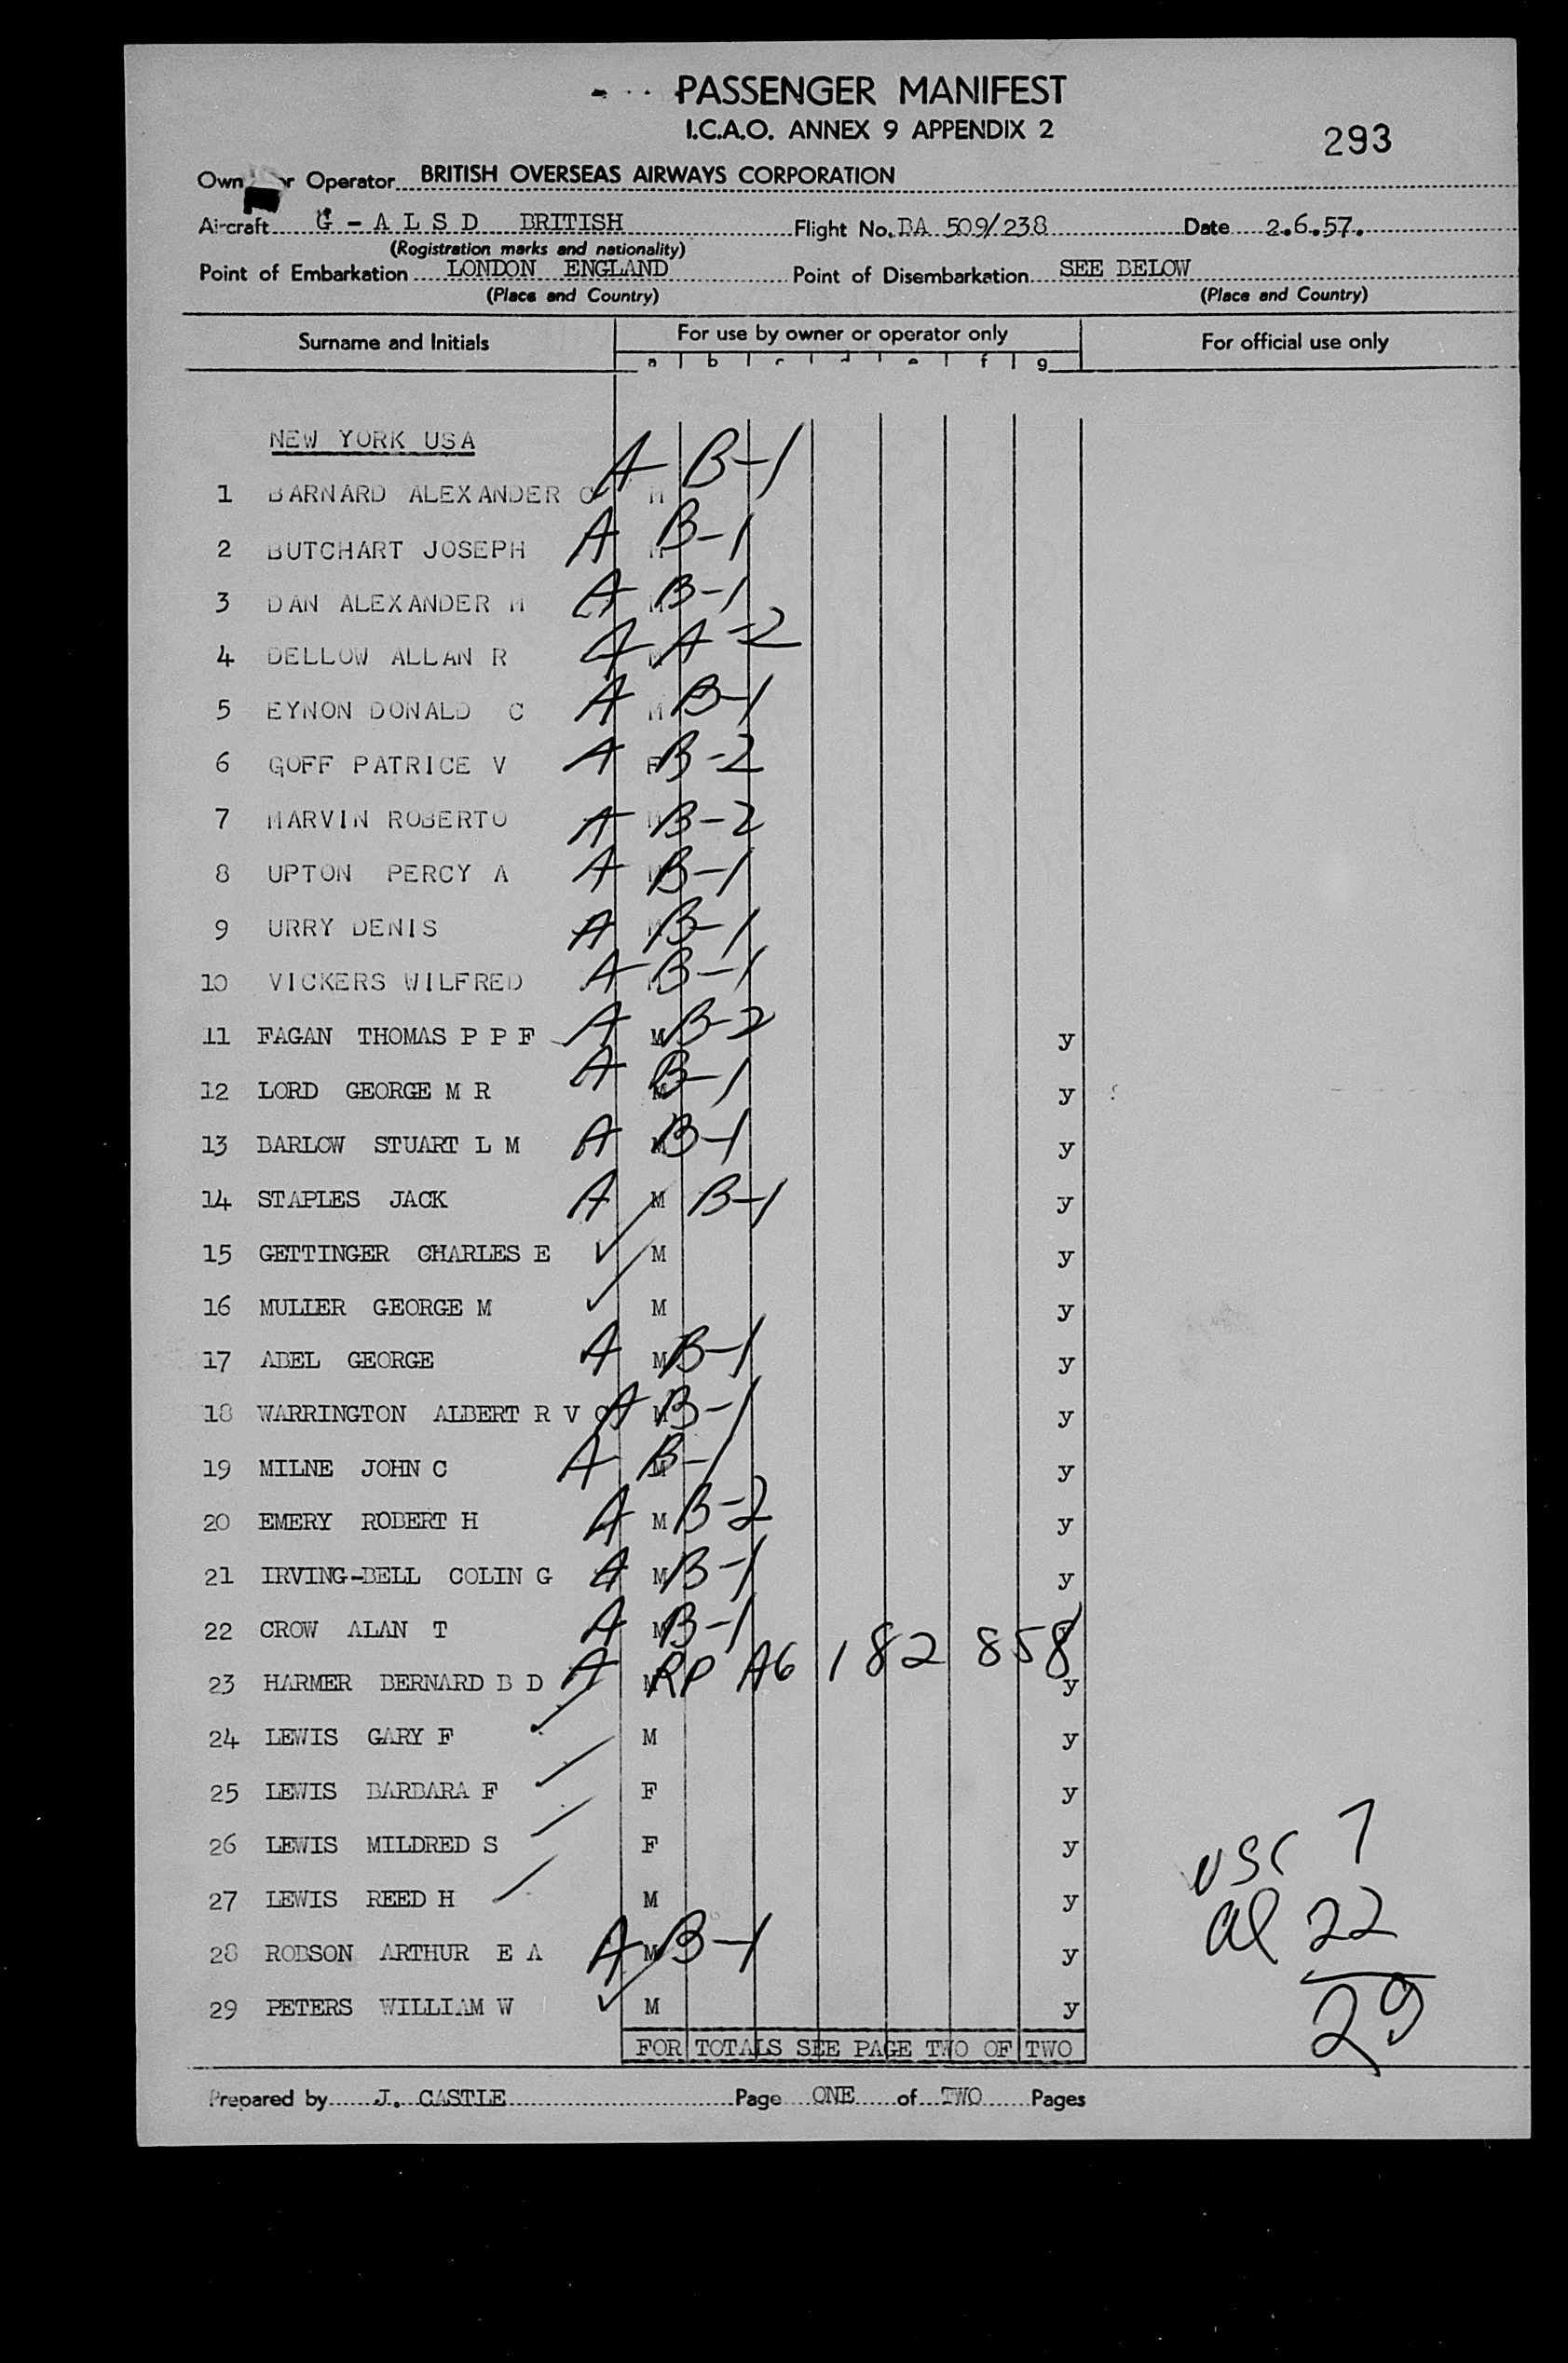 PASSENGER MANIFEST
I.C.A.O. ANNEX 9 APPENDIX 2
293
Own or Operator BRITISH OVERSEAS AIRWAYS CORPORATION
Aircraft G - A L S D BRITISH Flight No. BA 509/238 Date 2.6.57.
(Registration marks and nationality)
Point of Embarkation LONDON ENGLAND Point of Disembarkation SEE BELOW
(Place and Country) (Place and Country)
Surname and Initials For use by owner or operator only For official use only
a b c d e f g
NEW YORK USA
1 BARNARD ALEXANDER C A M B-1
2 BUTCHART JOSEPH A M B-1
3 DAN ALEXANDER M A M B-1
4 DELLOW ALLAN R A M A-2
5 EYNON DONALD C A M B-1
6 GOFF PATRICE V A F B-2
7 MARVIN ROBERTO A M B-2
8 UPTON PERCY A A B-1
9 URRY DENIS A M B-1
10 VICKERS WILFRED A B-1
11 FAGAN THOMAS P P F A M B-2 y
12 LORD GEORGE M R A M B-1 y
13 BARLOW STUART L M A M B-1 y
14 STAPLES JACK A M B-1 y
15 GETTINGER CHARLES E ✓ M y
16 MULLER GEORGE M ✓ M y
17 ABEL GEORGE A M B-1 y
18 WARRINGTON ALBERT R V C A M B-1 y
19 MILNE JOHN C A M B-1 y
20 EMERY ROBERT H A M B-2 y
21 IRVING-BELL COLIN G A M B-1 y
22 CROW ALAN T A M B-1
23 HARMER BERNARD B D A M RP A6 182 858 y
24 LEWIS GARY F ✓ M y
25 LEWIS BARBARA F ✓ F y
26 LEWIS MILDRED S ✓ F y
27 LEWIS REED H ✓ M y
28 ROBSON ARTHUR E A A M B-1 y
29 PETERS WILLIAM W ✓ M y
USC 7
al 22
29
FOR TOTALS SEE PAGE TWO OF TWO
Prepared by J. CASTLE Page ONE of TWO Pages